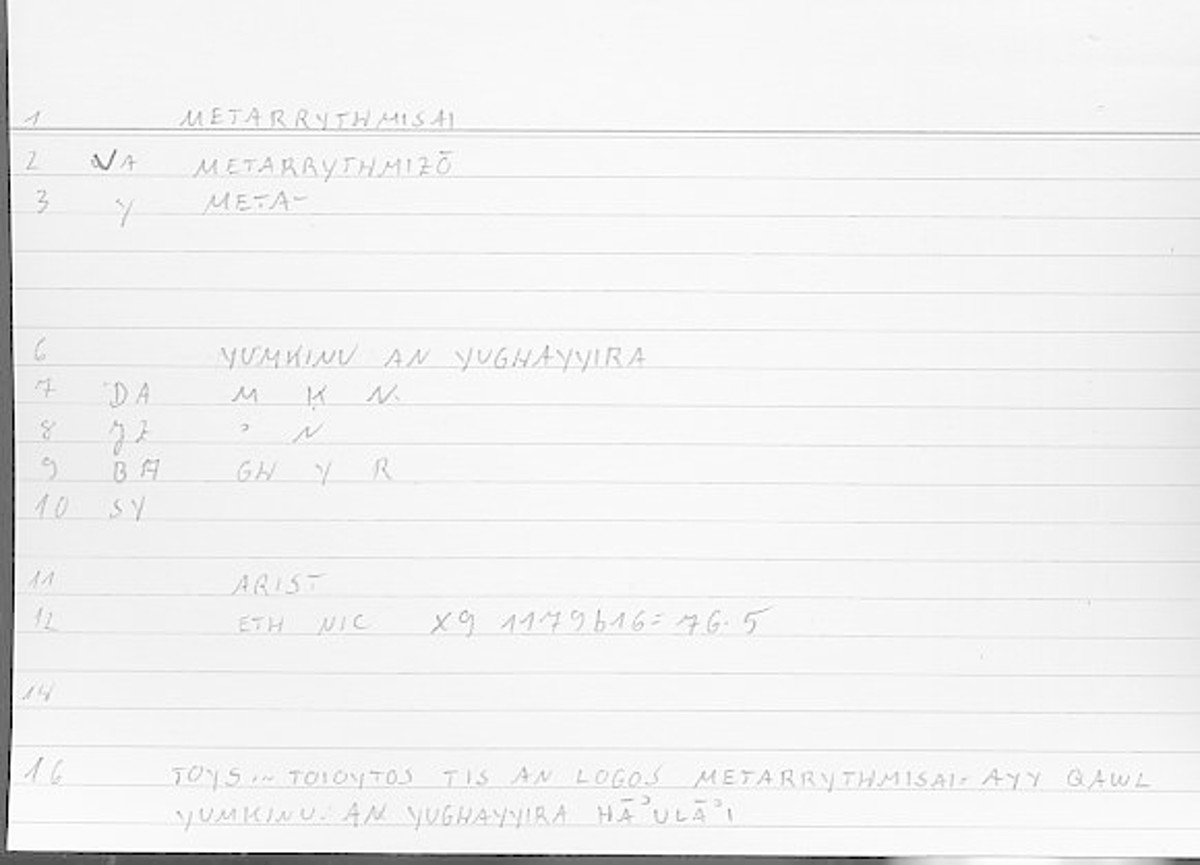 1 METARRYTHMISAI
2 VA METARRYTHMIZŌ
3 Y META-
6 YUMKINU AN YUGHAYYIRA
7 DA M K N
8 ʾ N
9 BA GH Y R
10 SY
11 ARIST
12 ETH NIC X9 1179b16= 76.5
14
16 TOYS... TOIOYTOS TIS AN LOGOS METARRYTHMISAI= AYY QAWL
YUMKINU: AN YUGHAYYIRA HĀʾULĀʾI